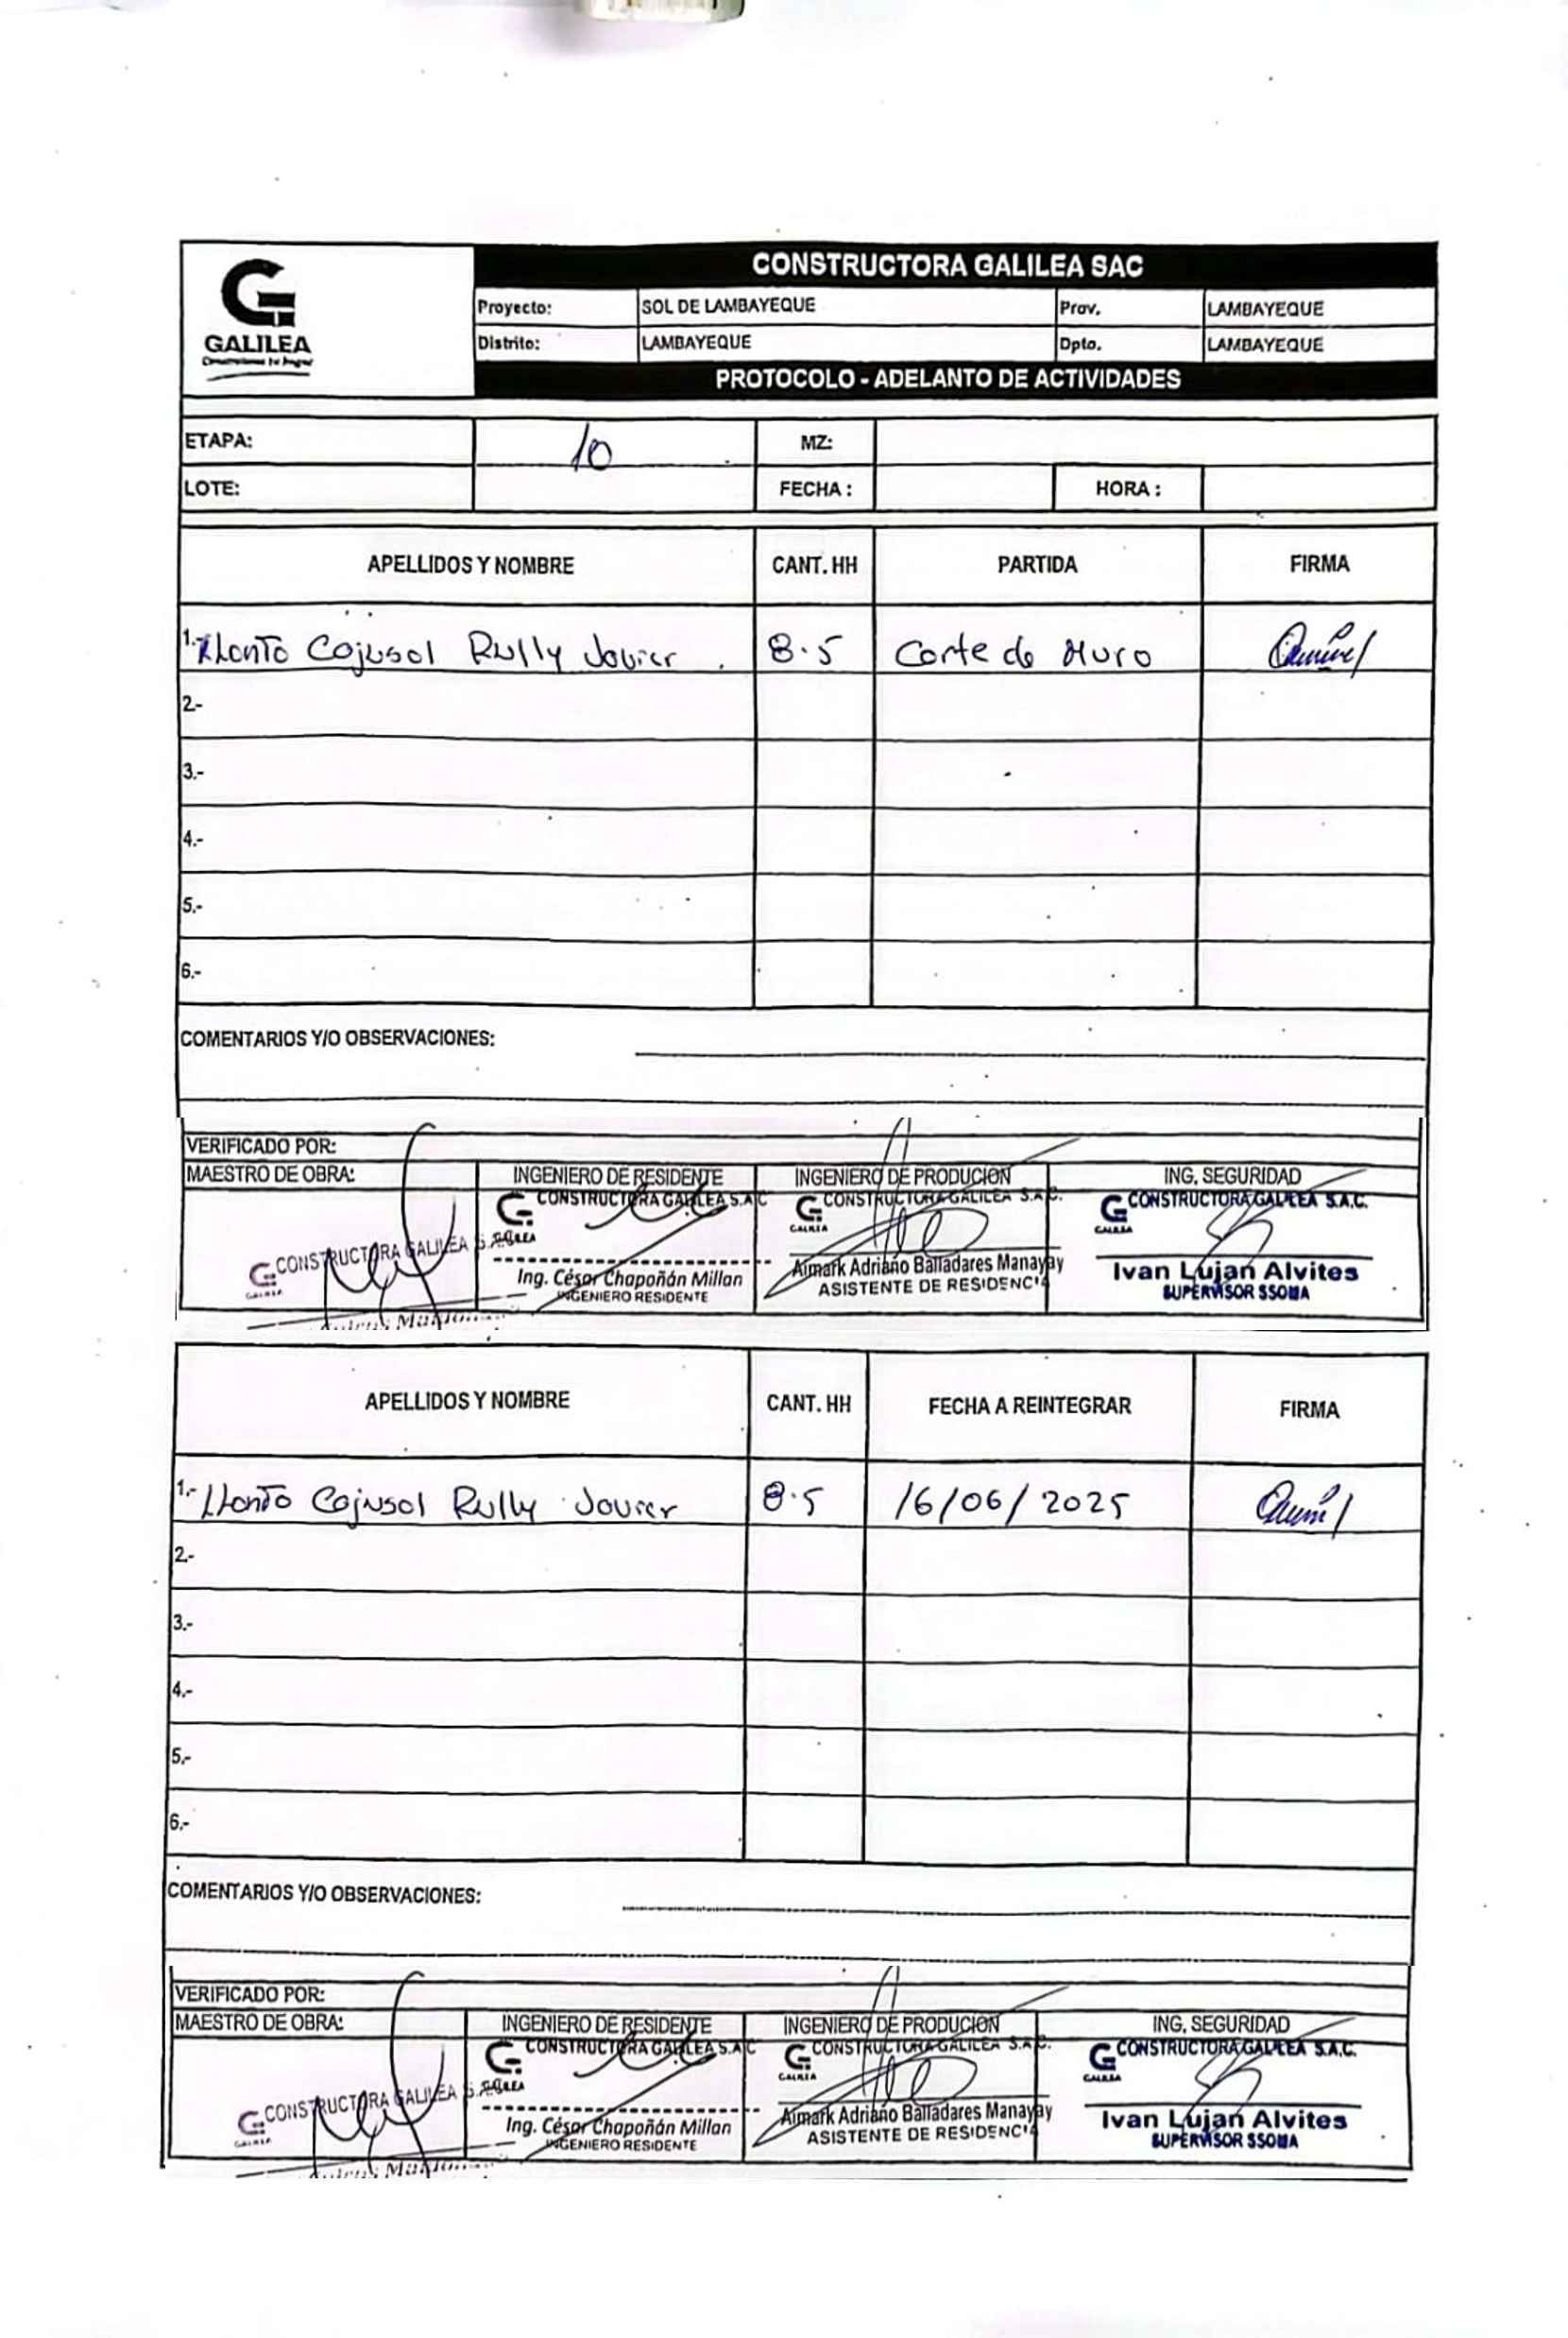 CONSTRUCTORA GALILEA SAC
GALILEA
Proyecto: SOL DE LAMBAYEQUE Prov. LAMBAYEQUE
Distrito: LAMBAYEQUE Dpto. LAMBAYEQUE
PROTOCOLO - ADELANTO DE ACTIVIDADES
ETAPA: 10 MZ:
LOTE: FECHA : HORA :
APELLIDOS Y NOMBRE CANT. HH PARTIDA FIRMA
1.- Llonto Cajusol Rully Javier 8.5 Corte de Muro
2.-
3.-
4.-
5.-
6.-
COMENTARIOS Y/O OBSERVACIONES:
VERIFICADO POR:
MAESTRO DE OBRA: INGENIERO DE RESIDENTE INGENIERO DE PRODUCION ING. SEGURIDAD
CONSTRUCTORA GALILEA S.A.C. CONSTRUCTORA GALILEA S.A.C CONSTRUCTORA GALILEA S.A.C. CONSTRUCTORA GALILEA S.A.C.
GALILEA GALILEA GALILEA GALILEA
Ing. César Chapoñán Millan Aimark Adriano Balladares Manayay Ivan Lujan Alvites
INGENIERO RESIDENTE ASISTENTE DE RESIDENCIA SUPERVISOR SSOMA
APELLIDOS Y NOMBRE CANT. HH FECHA A REINTEGRAR FIRMA
1.- Llonto Cajusol Rully Javier 8.5 16/06/2025
2.-
3.-
4.-
5.-
6.-
COMENTARIOS Y/O OBSERVACIONES:
VERIFICADO POR:
MAESTRO DE OBRA: INGENIERO DE RESIDENTE INGENIERO DE PRODUCION ING. SEGURIDAD
CONSTRUCTORA GALILEA S.A.C. CONSTRUCTORA GALILEA S.A.C CONSTRUCTORA GALILEA S.A.C. CONSTRUCTORA GALILEA S.A.C.
GALILEA GALILEA GALILEA GALILEA
Ing. César Chapoñán Millan Aimark Adriano Balladares Manayay Ivan Lujan Alvites
INGENIERO RESIDENTE ASISTENTE DE RESIDENCIA SUPERVISOR SSOMA